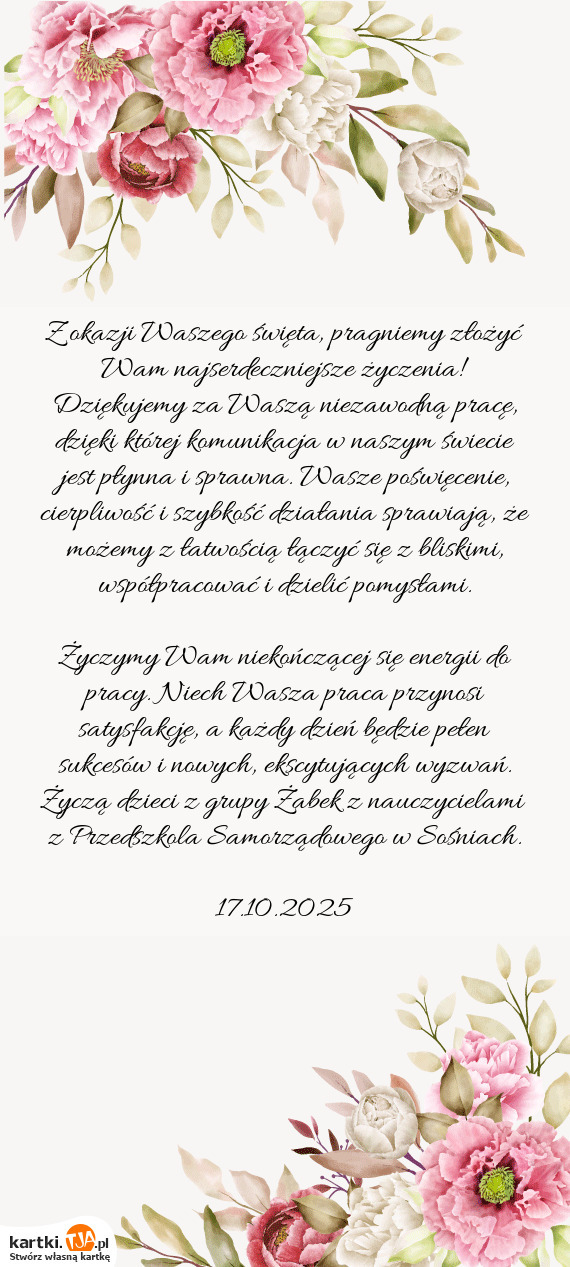 Z okazji Waszego święta, pragniemy złożyć
Wam najserdeczniejsze życzenia!
Dziękujemy za Waszą niezawodną pracę,
dzięki której komunikacja w naszym świecie
jest płynna i sprawna. Wasze poświęcenie,
cierpliwość i szybkość działania sprawiają, że
możemy z łatwością łączyć się z bliskimi,
współpracować i dzielić pomysłami.
Życzymy Wam niekończącej się energii do
pracy. Niech Wasza praca przynosi
satysfakcję, a każdy dzień będzie pełen
sukcesów i nowych, ekscytujących wyzwań.
Życzą dzieci z grupy Żabek z nauczycielami
z Przedszkola Samorządowego w Sośniach.
17.10.2025
kartki.TJA.pl
Stwórz własną kartkę